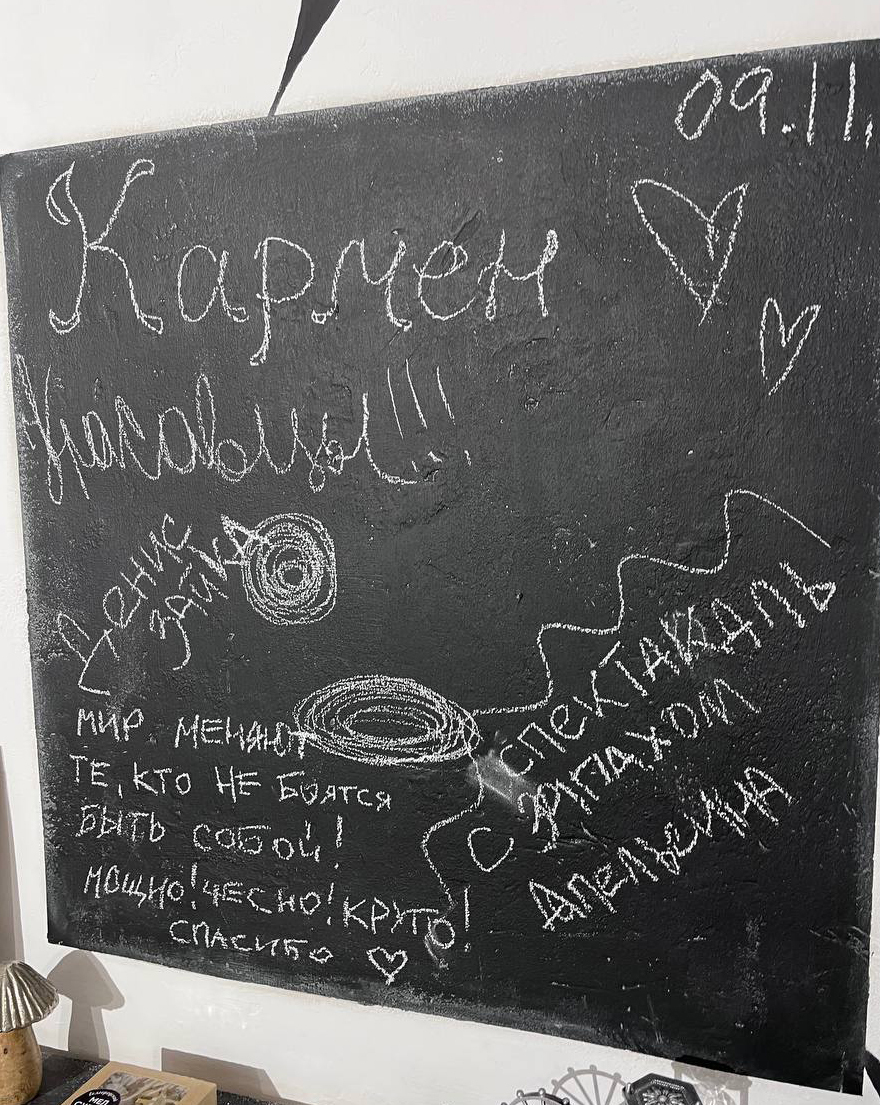 09.11.
Кармен
Красавцы!!!
Денис
зайка
МИР МЕНЯЮТ
ТЕ, КТО НЕ БОЯТСЯ
БЫТЬ СОБОЙ!
МОЩНО! ЧЕСНО! КРУТО!
СПАСИБО
СПЕКТАКАЛЬ
С ЗАПАХОМ
Апельсина
МЕД